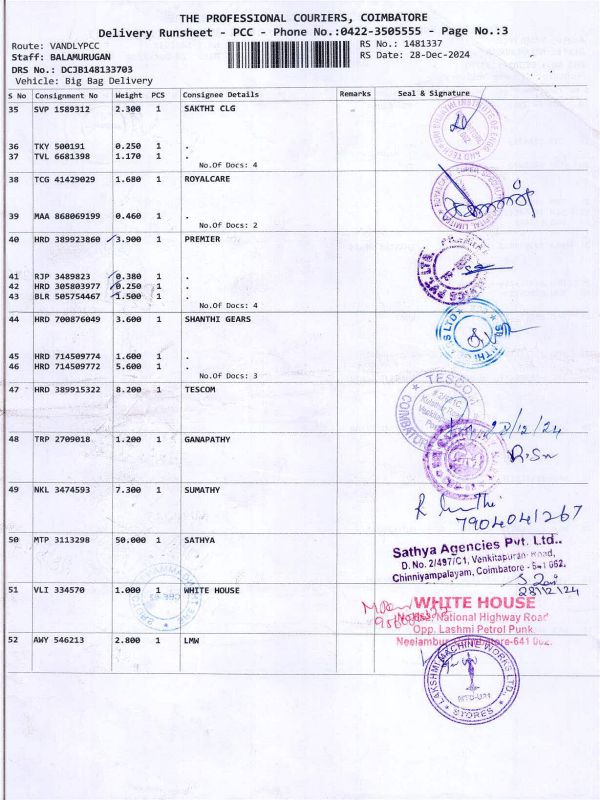 THE PROFESSIONAL COURIERS, COIMBATORE
Delivery Runsheet - PCC - Phone No.:0422-3505555 - Page No.:3
Route: VANDLYPCC
RS No.: 1481337
Staff: BALAMURUGAN
RS Date: 28-Dec-2024
DRS No.: DCJB148133703
Vehicle: Big Bag Delivery
S No Consignment No Weight PCS Consignee Details Remarks Seal & Signature
35 SVP 1589312 2.300 1 SAKTHI CLG
36 TKY 500191 0.250 1 .
37 TVL 6681398 1.170 1 .
No.Of Docs: 4
38 TCG 41429029 1.680 1 ROYALCARE
39 MAA 868069199 0.460 1 .
No.Of Docs: 2
40 HRD 389923860 3.900 1 PREMIER
41 RJP 3489823 0.380 1 .
42 HRD 305803977 0.250 1 .
43 BLR 505754467 1.500 1 .
No.Of Docs: 4
44 HRD 700876049 3.600 1 SHANTHI GEARS
45 HRD 714509774 1.600 1 .
46 HRD 714509772 5.600 1 .
No.Of Docs: 3
47 HRD 389915322 8.200 1 TESCOM
TESCOM
COIMBATORE
28/12/24
48 TRP 2709018 1.200 1 GANAPATHY
49 NKL 3474593 7.300 1 SUMATHY
7904041267
50 MTP 3113298 50.000 1 SATHYA
Sathya Agencies Pvt. Ltd..
D. No. 2/497/C1, Venkitapuran Road,
Chinniyampalayam, Coimbatore - 641 062.
28/12/24
51 VLI 334570 1.000 1 WHITE HOUSE
WHITE HOUSE
National Highway Road
Opp. Lashmi Petrol Punk
Neelambur, Coimbatore-641 062.
52 AWY 546213 2.800 1 LMW
LAKSHMI MACHINE WORKS LTD.,
STORES